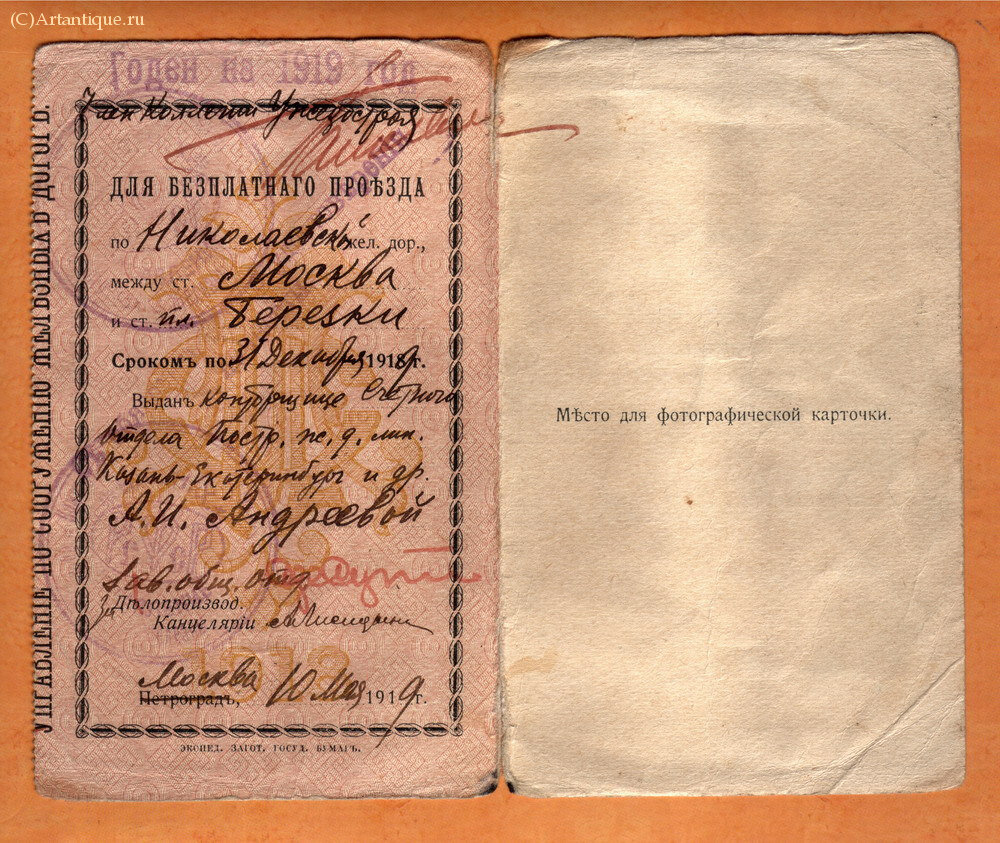 (C)Artantique.ru
Годен на 1919 год
Член Коллегии
УПРАВЛЕНІЕ ПО СООРУЖЕНІЮ ЖЕЛѢЗНЫХЪ ДОРОГЪ.
ДЛЯ БЕЗПЛАТНАГО ПРОѢЗДА
по Николаевской жел. дор.,
между ст. Москва
и ст. пл. Березки
Срокомъ по 31 Декабря 1919 г.
Выданъ конторщице Счетного
отдела Постр. ж. д. лин.
Казань-Екатеринбург и др.
А. И. Андреевой
Зав. общ. отд.
За Дѣлопроизвод.
Канцеляріи
Москва
Петроградъ, 10 Мая 1919 г.
ЭКСПЕД. ЗАГОТ. ГОСУД. БУМАГЪ.
Мѣсто для фотографической карточки.